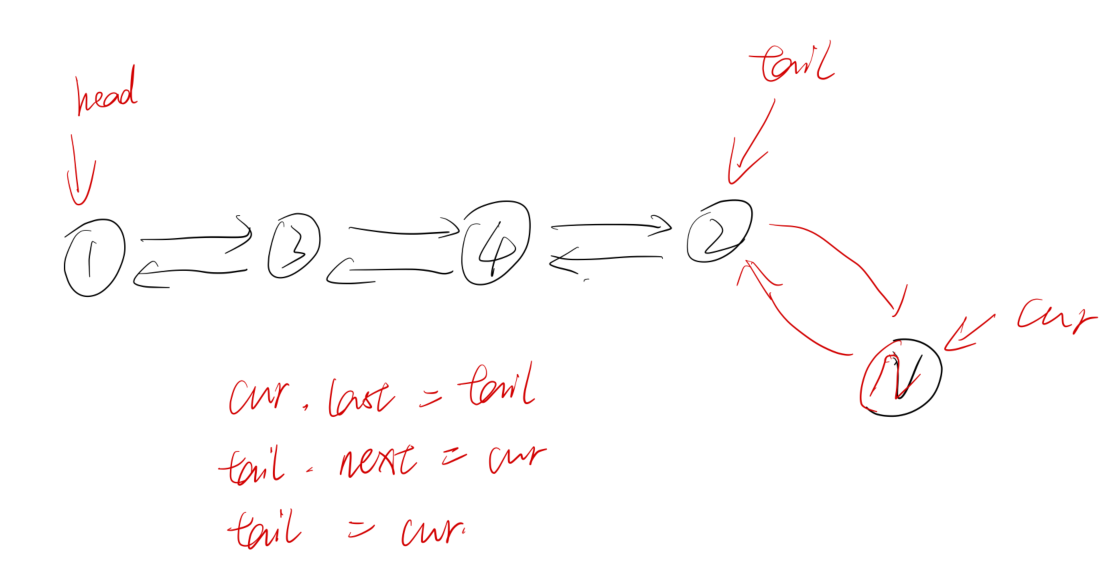 head
tail
1 3 4 2
cur
N
cur. last = tail
tail. next = cur
tail = cur.